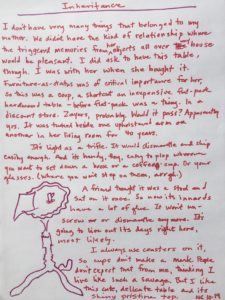 Inheritance
I don't have very many things that belonged to my
mother. We didn't have the kind of relationship where
the triggered memories from her objects all over the house
would be pleasant. I did ask to have this table
though. I was with her when she bought it.
Furniture-as-status was of critical importance for her,
so this was a coup, a shortcut an inexpensive flat-pack
hardwood table - before flat-pack was a thing. In a
discount store. Zayers, probably. Would it pass? Apparently
yes. It was tucked beside one upholstered arm or
another in her living room for 40 years.
It's light as a trifle. It would dismantle and ship
easily enough. And it's handy, say, easy to plop wherever
you want to set down a book or a coffee cup. Or your
glasses. (Where you won't step on them, argh.)
A friend thought it was a stud and
sat on it once. So now its innards
have a lot of glue. It won't un-
screw or dismantle any more. It's
going to live out its days right here,
most likely.
I always use coasters on it,
so cups don't make a mark. People
don't expect that from me, thinking I
live like such a savage. But I like
this cute, delicate table and its
shiny pristine top.